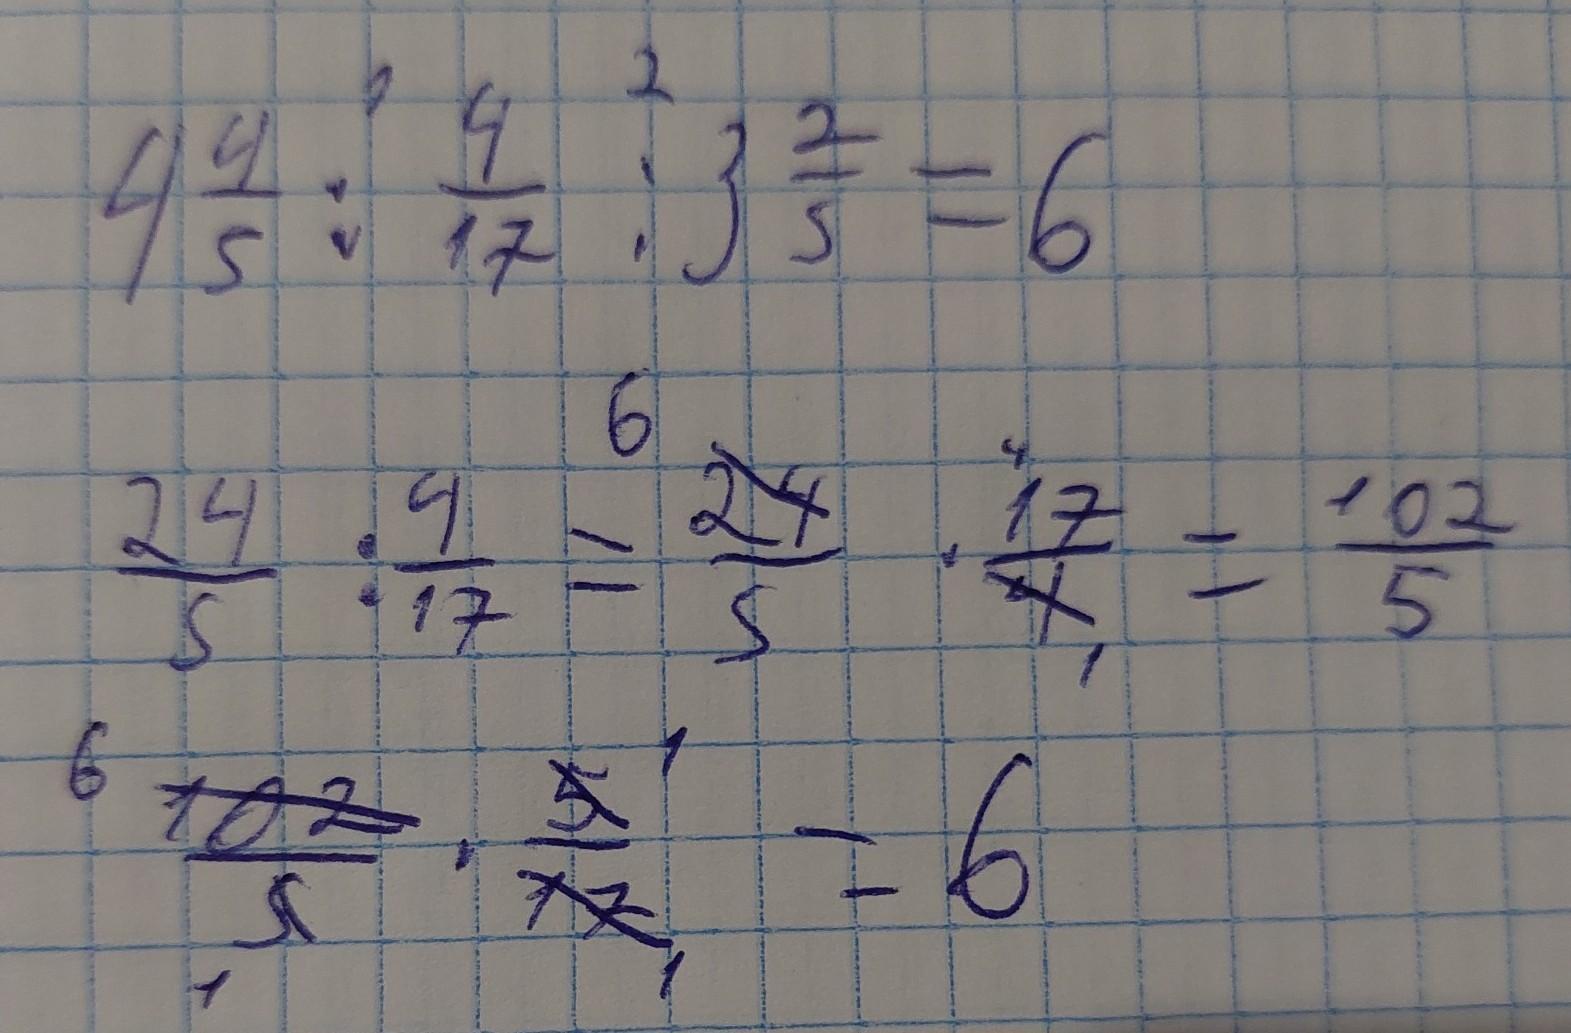 4 4/5 : 4/17 : 3 2/5 = 6
24/5 : 4/17 = 24/5 · 17/4 = 102/5
102/5 · 5/17 = 6